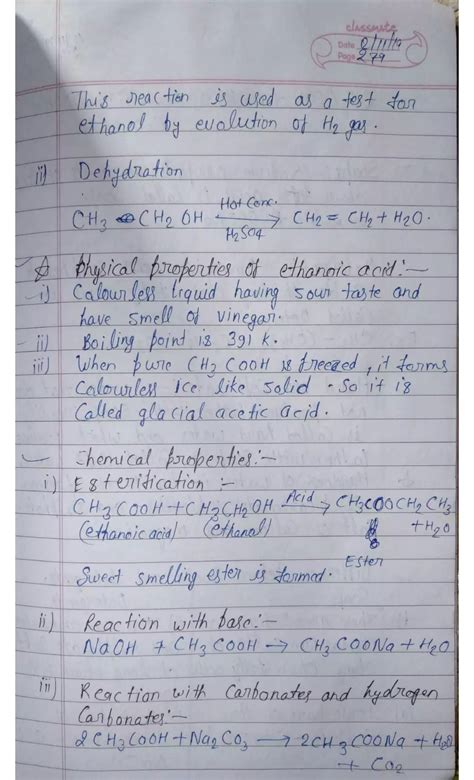 classmate
Date 0/11/19
Page 279
This reaction is used as a test for
ethanol by evolution of H2 gas.
ii) Dehydration
CH3 CH2 OH Hot Conc. → H2SO4 CH2 = CH2 + H2O.
Physical properties of ethanoic acid:-
i) Colourless liquid having sour taste and
have smell of vinegar.
ii) Boiling point is 391 K.
iii) When pure CH3 COOH is freezed, it forms
Colourless Ice like solid. So it is
Called glacial acetic acid.
Chemical properties:-
i) Esterification :-
CH3COOH + CH3CH2OH Acid → CH3COOCH2CH3
(ethanoic acid) (ethanol) + H2O
Ester
Sweet smelling ester is formed.
ii) Reaction with base:-
NaOH + CH3 COOH → CH3 COONa + H2O
iii) Reaction with Carbonates and hydrogen
Carbonates:-
2CH3COOH + Na2CO3 → 2CH3COONa + H2O
+ CO2